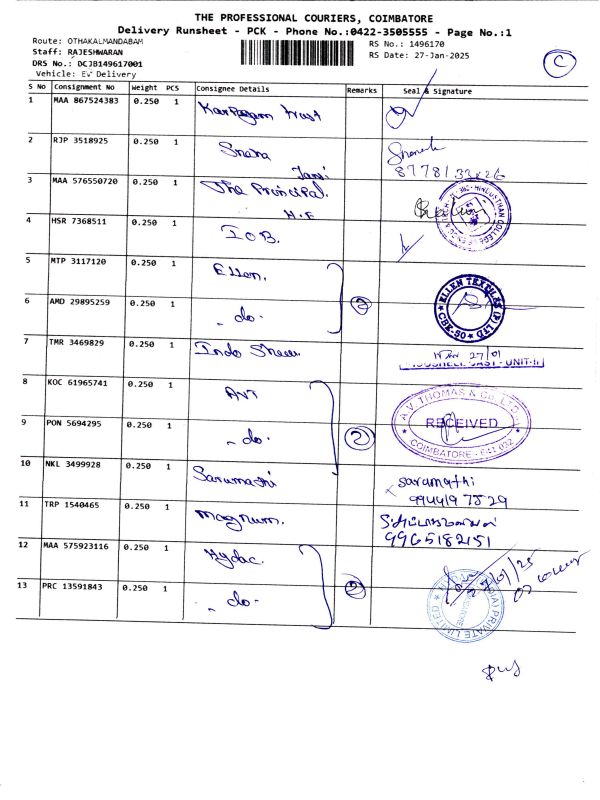 THE PROFESSIONAL COURIERS, COIMBATORE
Delivery Runsheet - PCK - Phone No.:0422-3505555 - Page No.:1
Route: OTHAKALMANDABAM
RS No.: 1496170
Staff: RAJESHWARAN
RS Date: 27-Jan-2025
DRS No.: DCJB149617001
Vehicle: EV Delivery
C
S No Consignment No Weight PCS Consignee Details Remarks Seal & Signature
1 MAA 867524383 0.250 1 Karpagam trust
2 RJP 3518925 0.250 1
3 MAA 576550720 0.250 1 The Principal.
H.E
4 HSR 7368511 0.250 1 I O B.
5 MTP 3117120 0.250 1 Ellen.
ELLEN TEXTILES (P) LTD
CBE-50
6 AMD 29895259 0.250 1 - do - 2
7 TMR 3469829 0.250 1 Indo Shell 27/01
UNIT-II
8 KOC 61965741 0.250 1 AVT
A.V. THOMAS & Co. LTD
RECEIVED
COIMBATORE - 641 032
9 PON 5694295 0.250 1 - do - 2
10 NKL 3499928 0.250 1 Sarumathi
sarumathi
11 TRP 1540465 0.250 1 Magnum.
9965182151
12 MAA 575923116 0.250 1 Hydac.
13 PRC 13591843 0.250 1 - do -
27/01/25
PRIVATE LIMITED